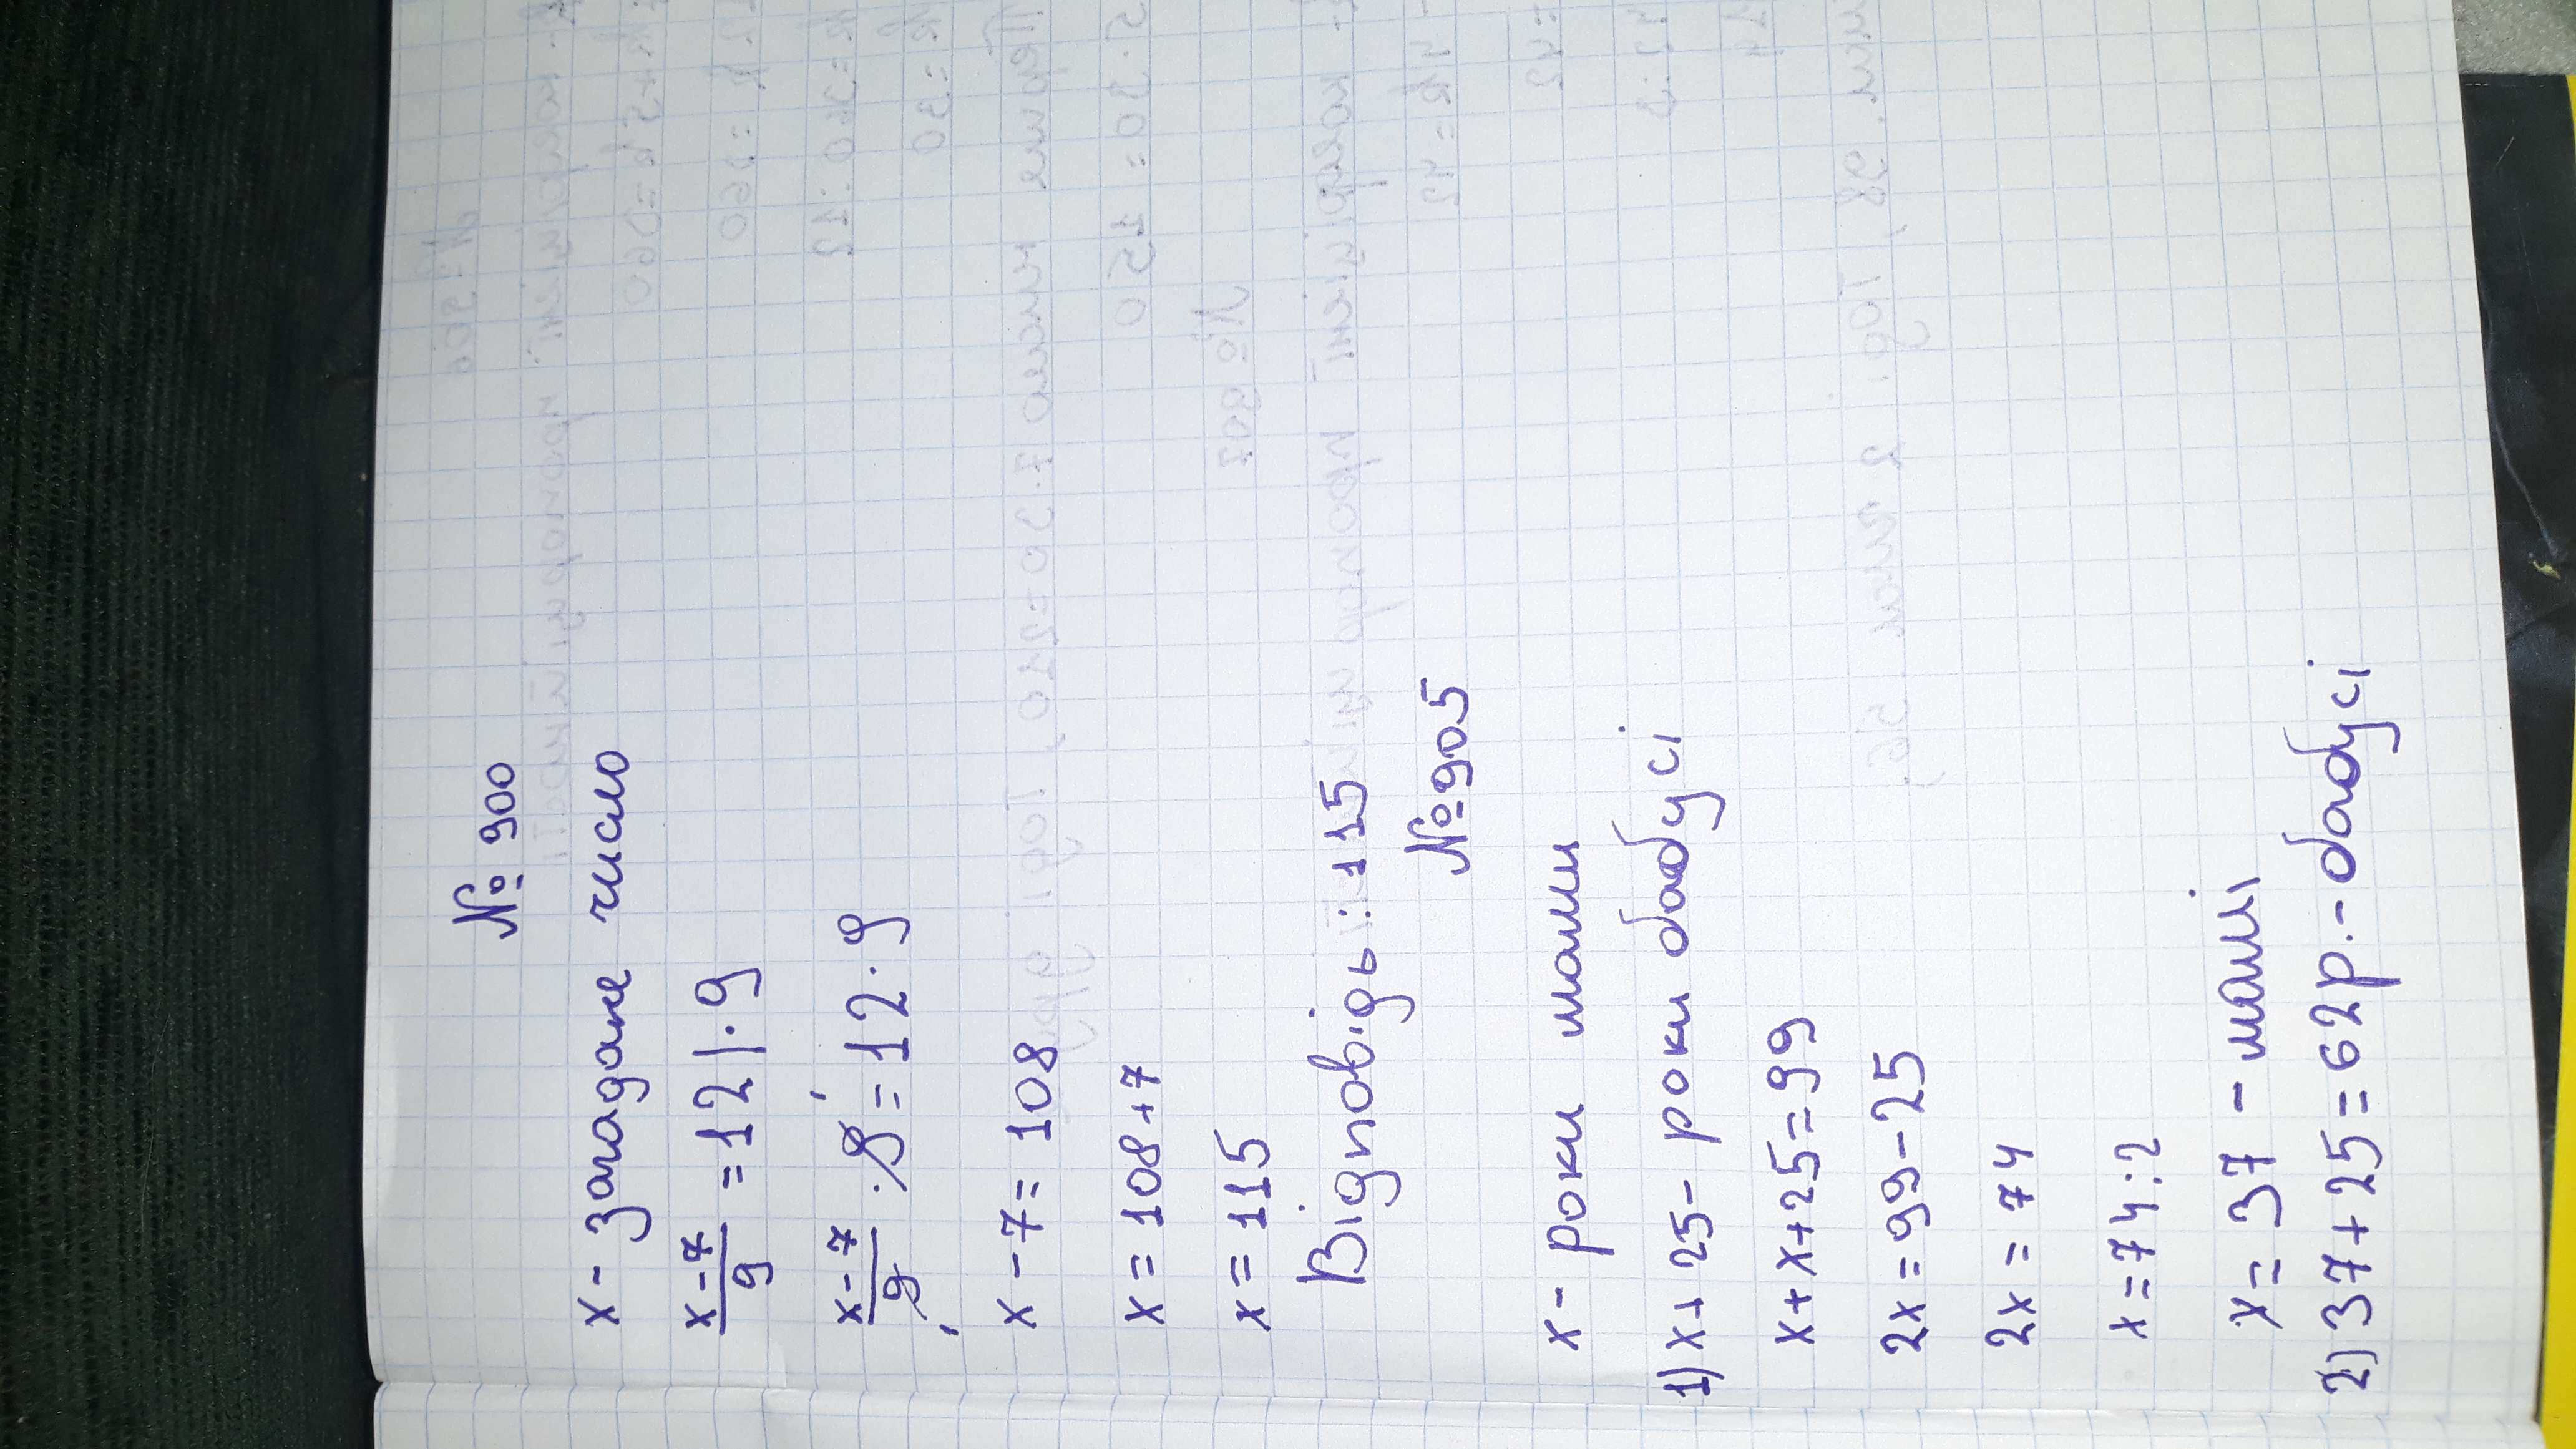 № 900
x - загадане число
x-7/9 = 12 | · 9
x-7/9 · 9 = 12 · 9
x - 7 = 108
x = 108 + 7
x = 115
Відповідь: 115
№ 905
x - роки мами
1) x + 25 - роки бабусі
x + x + 25 = 99
2x = 99 - 25
2x = 74
x = 74 : 2
x = 37 - мамі
2) 37 + 25 = 62 р. - бабусі